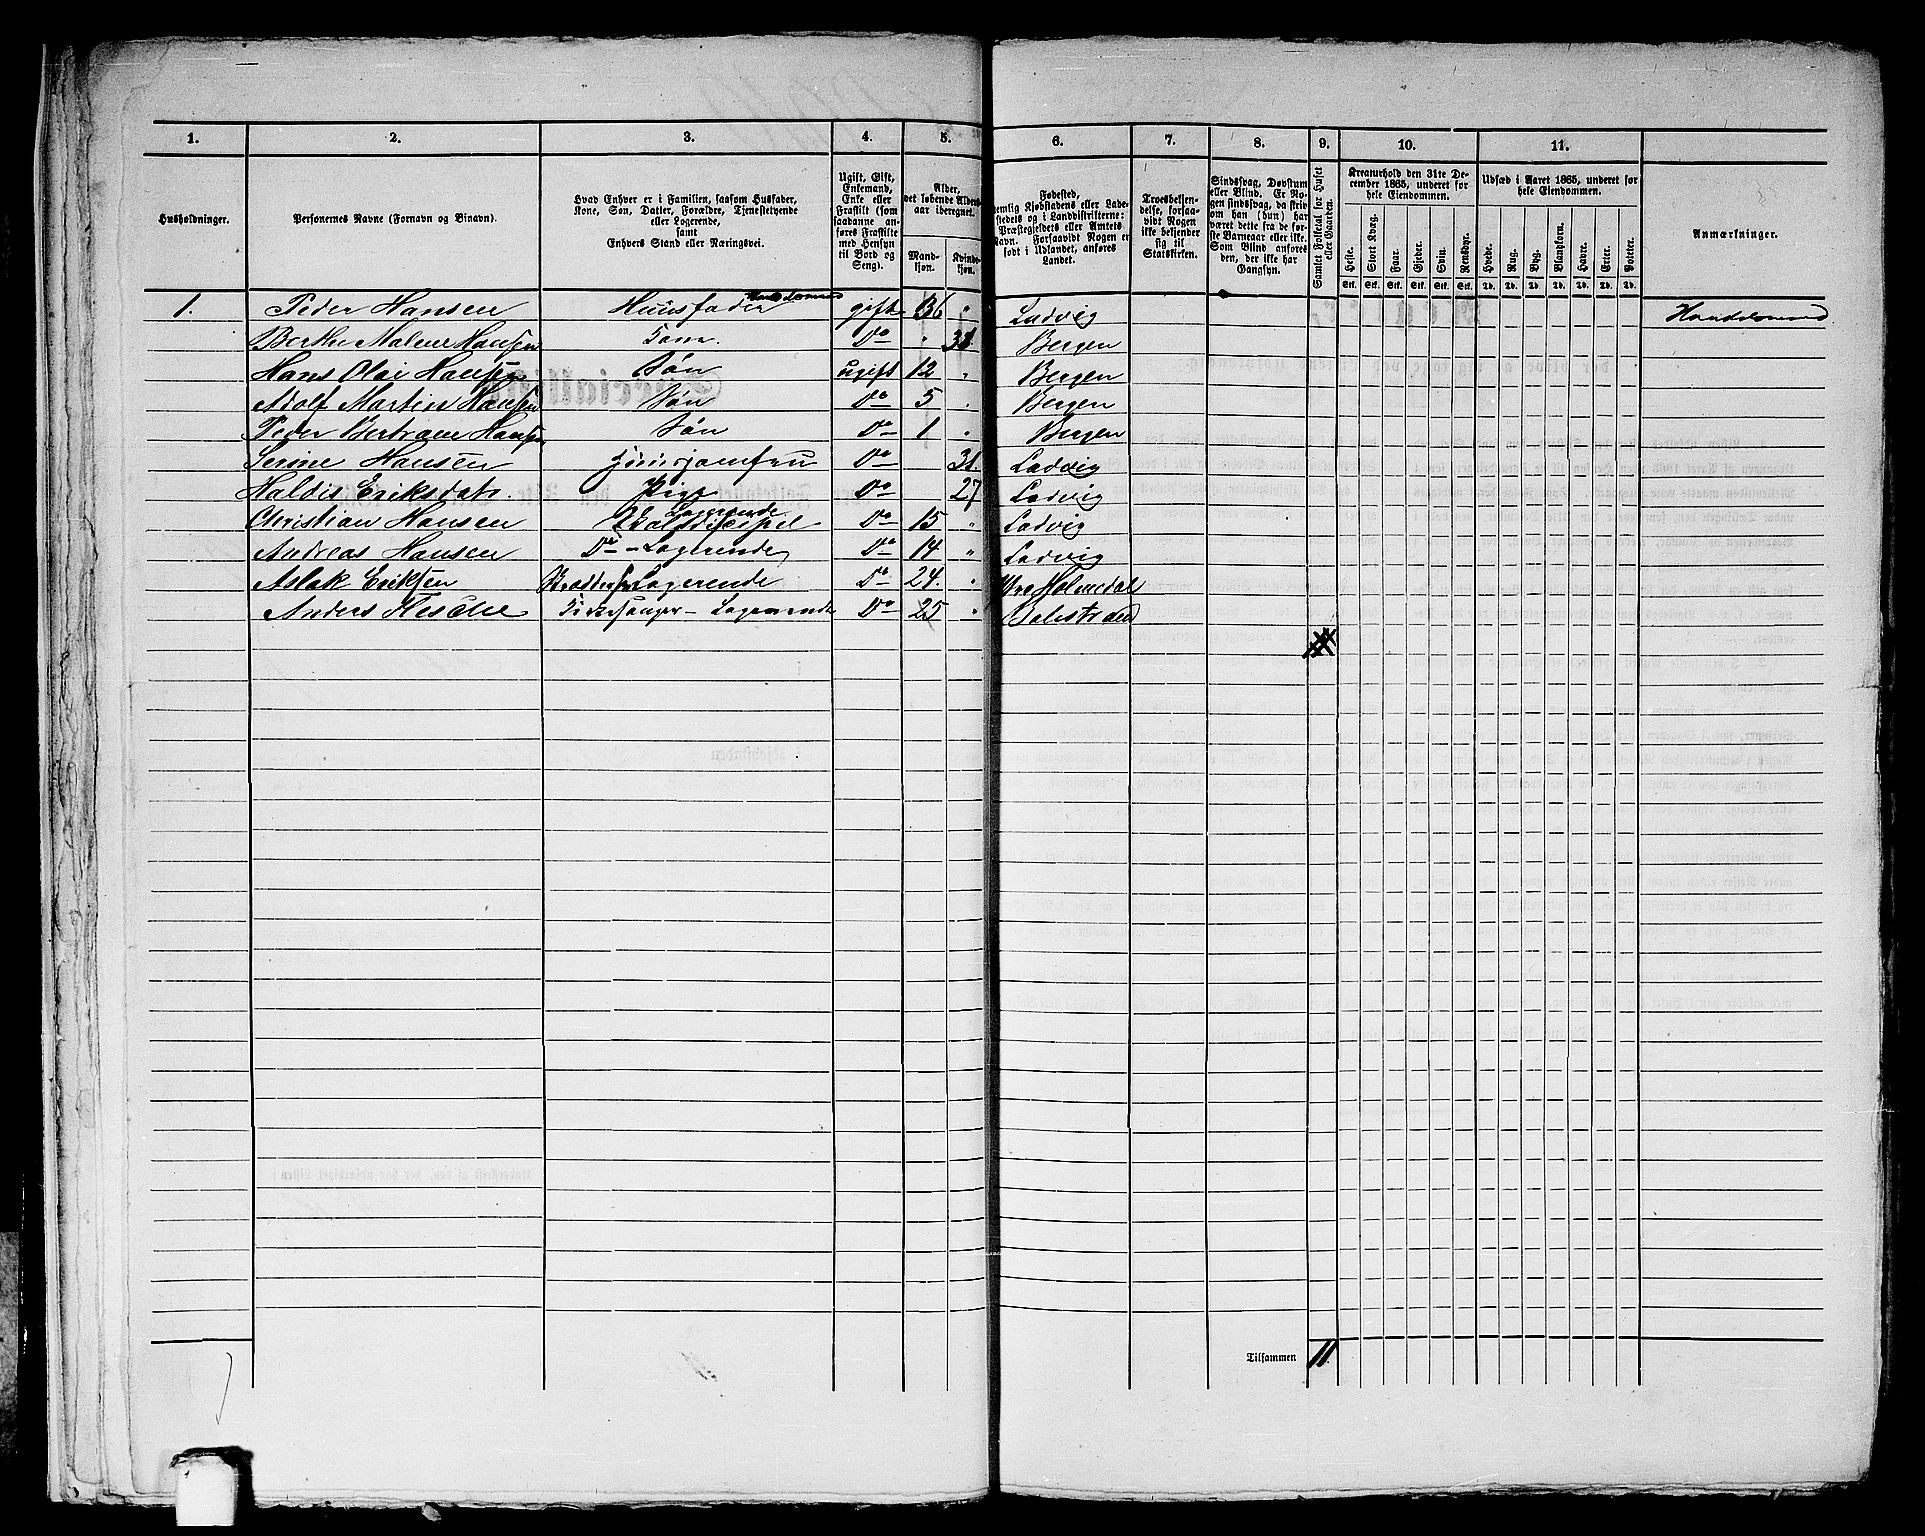 1. 2. 3. 4. 5. 6. 7. 8. 9. 10. 11.
Husholdninger.
Personernes Navne (Fornavn og Binavn).
Hvad Enhver er i Familien, saasom Husfader,
Kone, Søn, Datter, Forældre, Tjenestetyende
eller Logerende,
samt
Enhvers Stand eller Næringsvei.
Ugift, Gift,
Enkemand,
Enke eller
Fraskilt (som
saadanne an-
føres Fraskilte
med Hensyn
til Bord og
Seng).
Alder,
det løbende Alders-
aar iberegnet.
Mand-
kjøn.
Kvinde-
kjøn.
Fødested,
nemlig Kjøbstadens eller Lade-
stedets og i Landdistrikterne:
Præstegjeldets eller Amtets
Navn. Forsaavidt Nogen er
født i Udlandet, anføres
Landet.
Troesbekjen-
delse, forsaa-
vidt Nogen
ikke bekjender
sig til
Statskirken.
Sindssvag, Døvstum
eller Blind. Er No-
gen sindssvag, da skriv
om han (hun) har
været dette fra de før-
ste Barneaar eller ikke.
Som Blind anføres
den, der ikke har
Gangsyn.
Samlet Folketal for Huset
eller Gaarden.
Kreaturhold den 31te De-
cember 1865, underet for
hele Eiendommen.
Heste. Stort Kvæg. Faar. Gjeder. Svin. Rensdyr.
Stk. Stk. Stk. Stk. Stk. Stk.
Udsæd i Aaret 1865, underet for
hele Eiendommen.
Hvede. Rug. Byg. Blandkorn. Havre. Erter. Poteter.
Td. Td. Td. Td. Td. Td. Td.
Anmærkninger.
1. Peder Hansen Huusfader Handelsmand gift 36 " Ladvig Handelsmand
Berthe Malene Hansen Do " Bergen
Hans Olai Hansen Søn ugift 12 " Bergen
Adolf Martin Hansen Søn Do 5 " Bergen
Peder Bertram Hansen Søn Do 1 " Bergen
Serine Hansen Huusjomfru Do 31. Ladvig
Haldis Eriksdatr. Pige Do 27 Ladvig
Christian Hansen Logerende Do 15 " Ladvig
Andreas Hansen Do - Logerende Do 14 " Ladvig
Aslak Eriksen Logerende Do 24. " Yre Holmedal
Anders Kirkesanger - Logerende Do 25 " Balestrand
Tilsammen 11.